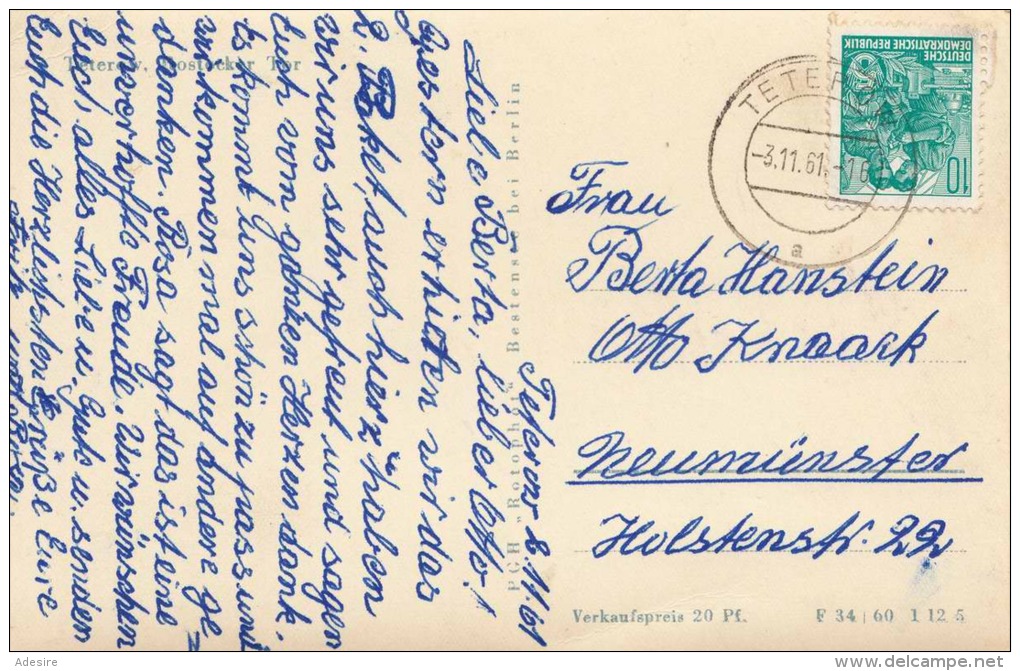 Teterow, Rostocker Tor
Teterow 8.11.61
Liebe Berta, lieber Otto!
Gestern erhielten wir das
l. Paket, auch hierz haben
wir uns sehr gefreut und sagen
Euch von ganzen Herzen dank.
Es kommt uns schön zu pass und
angekommen mal auf andere ge
danken. Rosa sagt das ist eine
unverhoffte Freude. Wir wünschen
Euch alles Liebe u. Gute u. senden
Euch die Herzlichsten Grüße Eure
Fritz und Rosa.
PGH „Rotophot“ Bestensee bei Berlin
DEUTSCHE
DEMOKRATISCHE REPUBLIK
10
TETEROW
-3.11.61.-16
a
Frau
Berta Hanstein
Otto Knaack
Neumünster
Holstenstr. 22
Verkaufspreis 20 Pf. F 34 | 60 1 12 5
Adesire